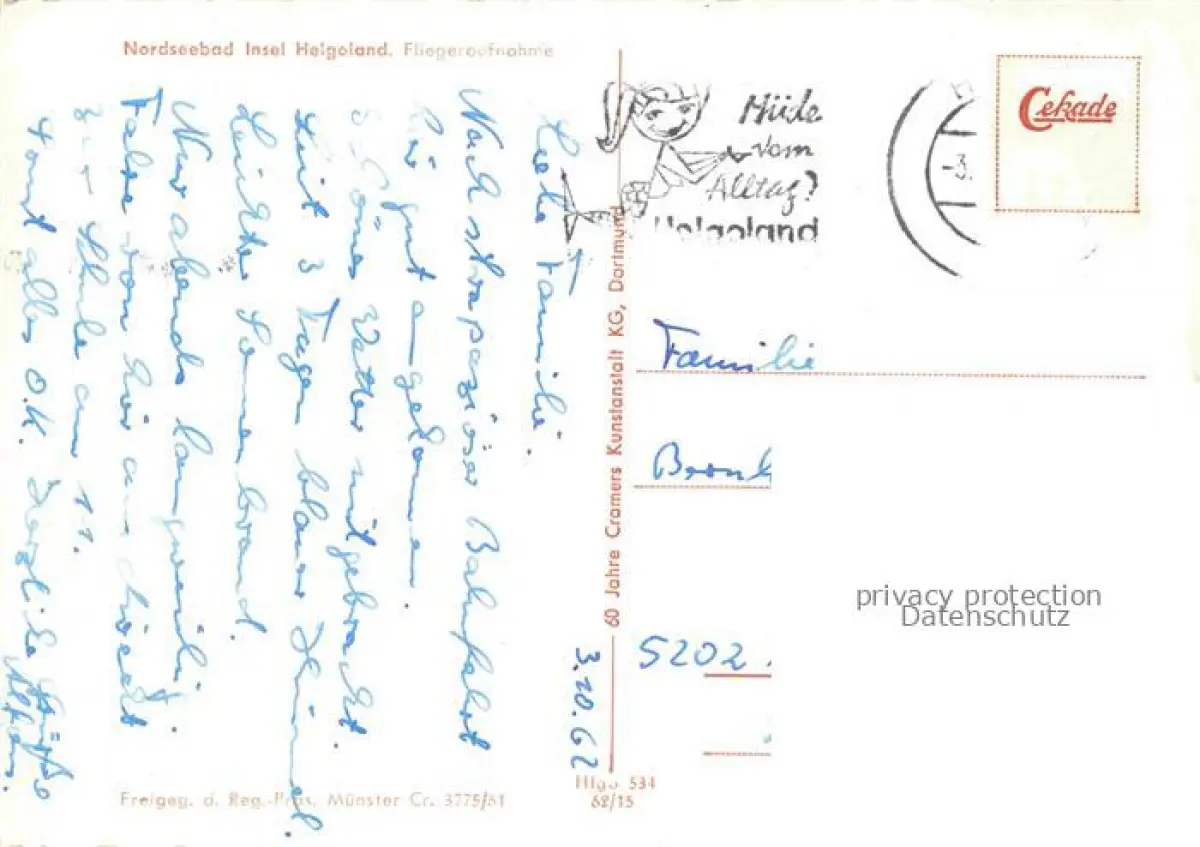 Nordseebad Insel Helgoland. Fliegeraufnahme
3.10.62
Liebe Familie.
Nach strapaziöser Bahnfahrt
hir gut angekommen.
Schönes Wetter mitgebracht.
Seit 3 Tagen blauer Himmel.
Leichter Sonnenbrand.
Nur abends langweilig.
Fahre von hir aus direckt
zur Schule am 11.
Sonst alles O.K. Herzliche Grüße
Alfons.
Freigeg. d. Reg.-Präs. Münster Cr. 3775/61
60 Jahre Cramers Kunstanstalt KG, Dortmund
Hlgo 534
62/15
Müde
vom
Alltag?
Helgoland
-3.
Cekade
Familie
5202.
privacy protection
Datenschutz